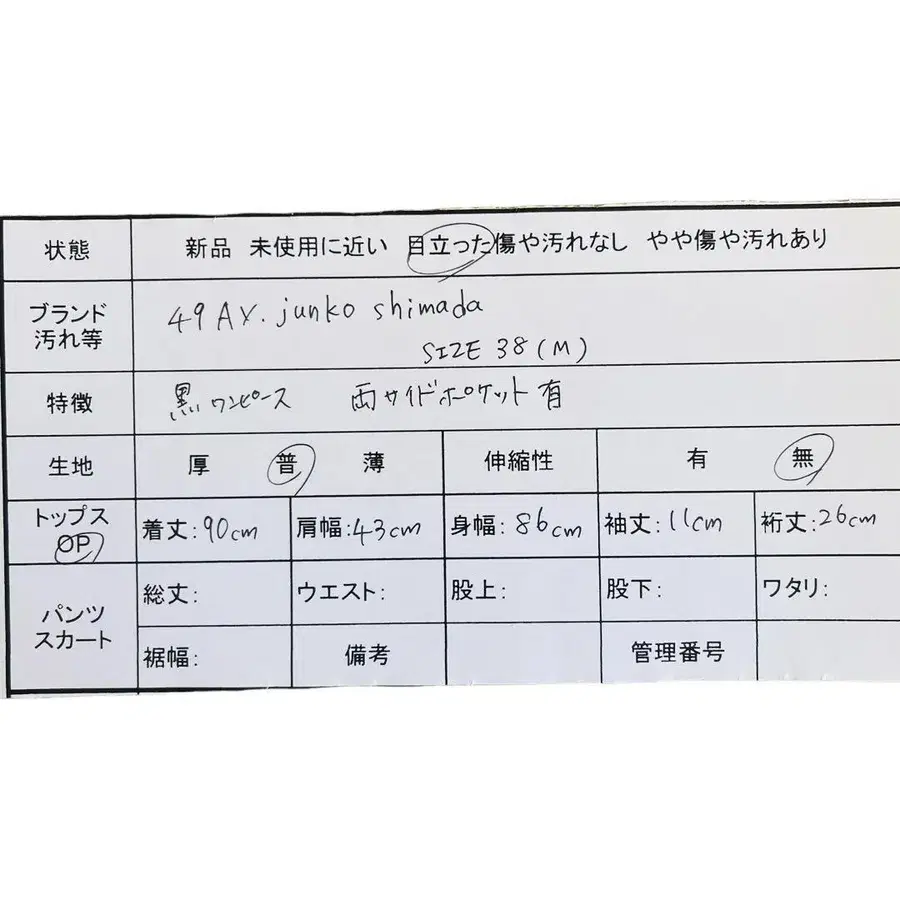 状態 新品 未使用に近い 目立った傷や汚れなし やや傷や汚れあり
ブランド
汚れ等
49 AV. junko shimada
SIZE 38 (M)
特徴 黒 ワンピース 両サイドポケット有
生地 厚 普 薄 伸縮性 有 無
トップス
OP
着丈:90cm 肩幅:43cm 身幅:86cm 袖丈:11cm 裄丈:26cm
パンツ
スカート
総丈: ウエスト: 股上: 股下: ワタリ:
裾幅: 備考 管理番号